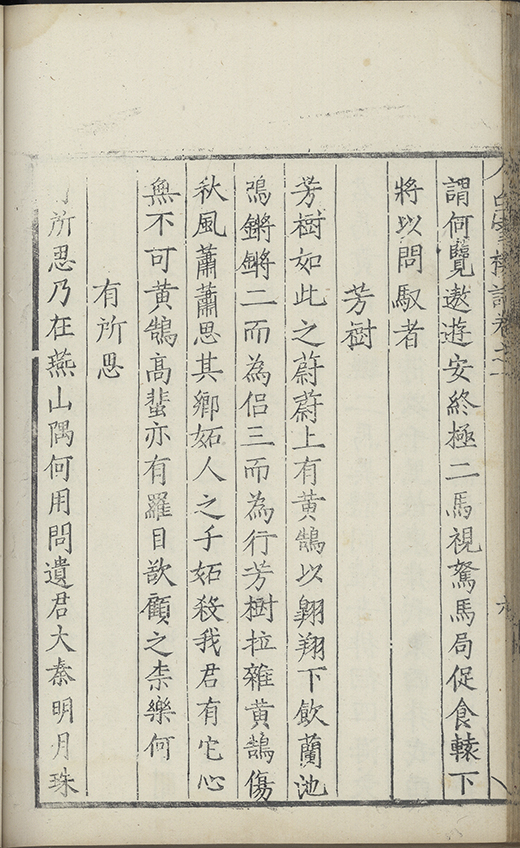 謂何覽遨遊安終極二馬視駑馬局促食轅下
將以問馭者
芳樹
芳樹如此之蔚蔚上有黃鵠以翱翔下飲蘭池
鳴鏘鏘二而為侶三而為行芳樹拉雜黃鵠傷
秋風蕭蕭思其鄉妬人之子妬殺我君有它心
無不可黃鵠高蜚亦有羅目欲顧之柰樂何
有所思
所思乃在燕山隅何用問遺君大秦明月珠